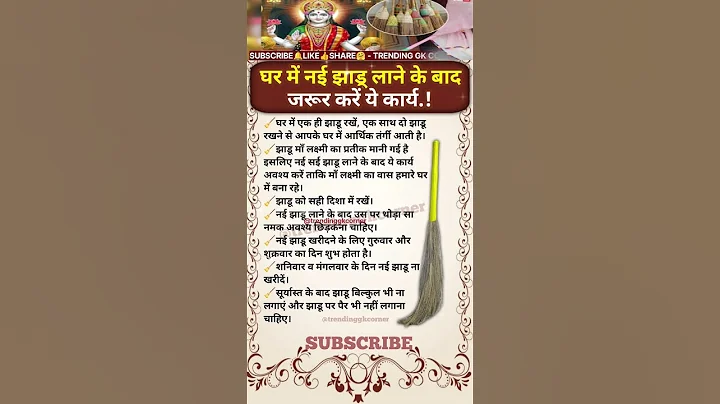 SUBSCRIBE🔔LIKE👍SHARE🤗 - TRENDING GK C
घर में नई झाड़ू लाने के बाद
जरूर करें ये कार्य.!
🧹घर में एक ही झाडू रखें, एक साथ दो झाडू
रखने से आपके घर में आर्थिक तंगी आती है।
🧹झाडू माँ लक्ष्मी का प्रतीक मानी गई है
इसलिए नई सई झाडू लाने के बाद ये कार्य
अवश्य करें ताकि माँ लक्ष्मी का वास हमारे घर
में बना रहे।
🧹झाडू को सही दिशा में रखें।
🧹नई झाडू लाने के बाद उस पर थोड़ा सा
@trendinggkcorner
नमक अवश्य छिड़कना चाहिए।
🧹नई झाडू खरीदने के लिए गुरुवार और
शुक्रवार का दिन शुभ होता है।
🧹शनिवार व मंगलवार के दिन नई झाडू ना
खरीदें।
🧹सूर्यास्त के बाद झाडू बिल्कुल भी ना
लगाएं और झाडू पर पैर भी नहीं लगाना
चाहिए।
@trendinggkcorner
SUBSCRIBE